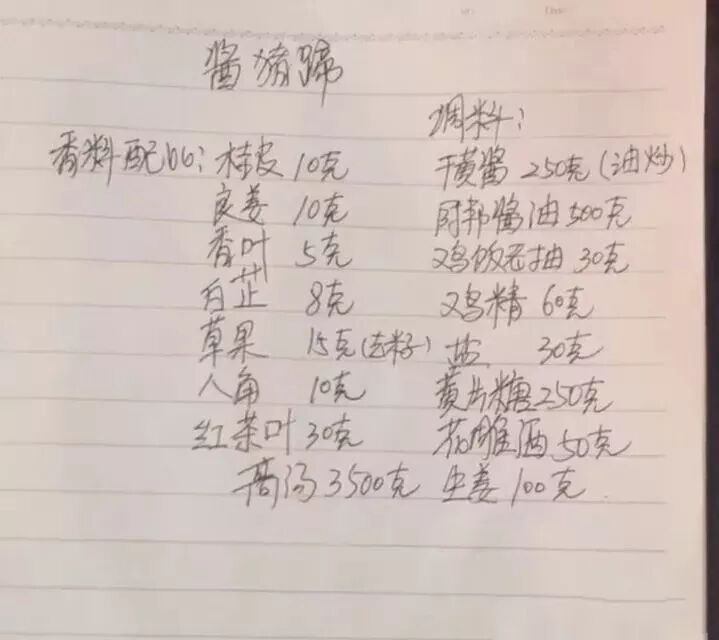 酱猪蹄
调料：
香料配比：桂皮 10克 干黄酱 250克（油炒）
良姜 10克 阿邦酱油 500克
香叶 5克 鸡饭老抽 30克
白芷 8克 鸡精 60克
草果 15克（去籽） 盐 30克
八角 10克 黄片糖 250克
红茶叶 30克 花雕酒 50克
高汤 3500克 生姜 100克